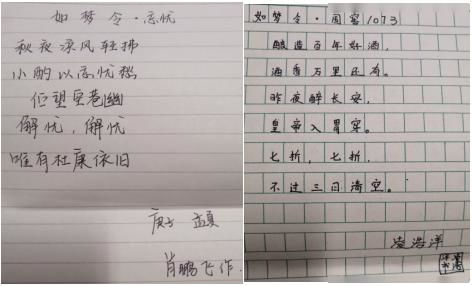 如梦令·忘忧
秋夜凉风轻拂
小酌以忘忧愁
但望宝巷幽
解忧，解忧
唯有杜康依旧
庚子
肖鹏飞作.
如梦令·国窖1073
酿造百年好酒，
酒香万里还有。
昨夜醉长安，
皇帝入胃穿。
七折，七折，
不过三日清空。
凌海洋